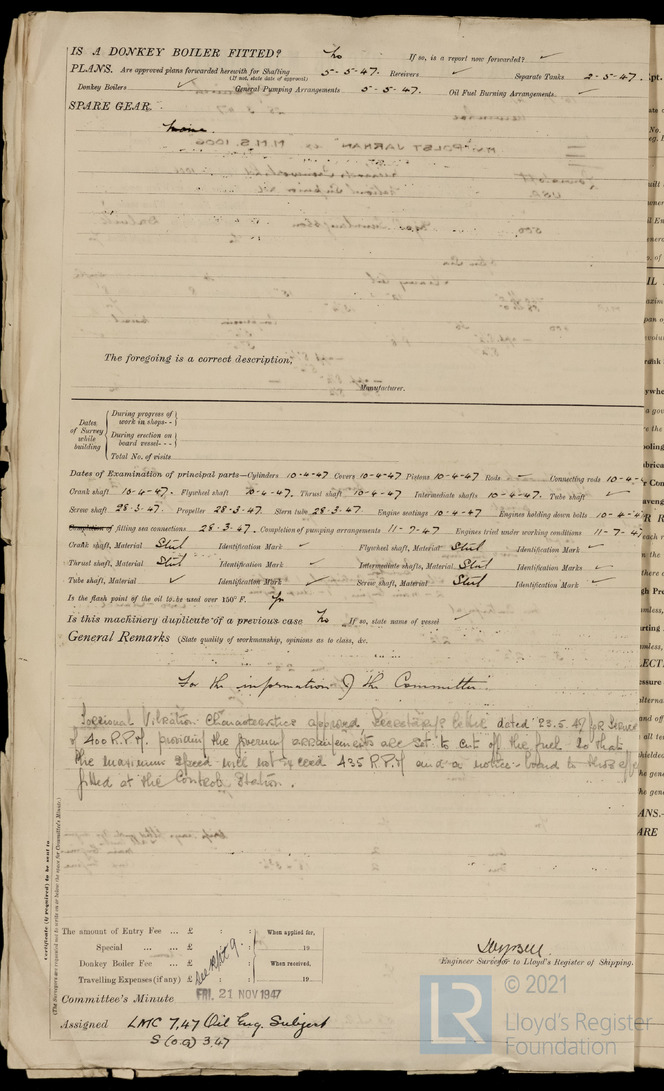 IS A DONKEY BOILER FITTED? No If so, is a report now forwarded? ✓
PLANS. Are approved plans forwarded herewith for Shafting 5-5-47. Receivers ✓ Separate Tanks 2-5-47.
(If not, state date of approval)
Donkey Boilers ✓ General Pumping Arrangements 5-5-47. Oil Fuel Burning Arrangements. ✓
SPARE GEAR.
None.
The foregoing is a correct description,
Manufacturer.
Dates of Survey while building
During progress of work in shops - -
During erection on board vessel - - -
Total No. of visits
Dates of Examination of principal parts—Cylinders 10-4-47 Covers 10-4-47 Pistons 10-4-47 Rods ✓ Connecting rods 10-4-
Crank shaft 10-4-47. Flywheel shaft 10-4-47. Thrust shaft 10-4-47 Intermediate shafts 10-4-47. Tube shaft ✓
Screw shaft 28-3-47. Propeller 28-3-47. Stern tube 28-3-47. Engine seatings 10-4-47 Engines holding down bolts 10-4-4
Completion of filling sea connections 28-3-47. Completion of pumping arrangements 11-7-47 Engines tried under working conditions 11-7-47
Crank shaft, Material Steel Identification Mark ✓ Flywheel shaft, Material Steel Identification Mark ✓
Thrust shaft, Material Steel Identification Mark ✓ Intermediate shafts, Material Steel Identification Marks ✓
Tube shaft, Material ✓ Identification Mark ✓ Screw shaft, Material Steel Identification Mark ✓
Is the flash point of the oil to be used over 150° F. Yes
Is this machinery duplicate of a previous case No If so, state name of vessel ✓
General Remarks (State quality of workmanship, opinions as to class, &c.
For the information of the Committee.
Torsional Vibration Characteristics approved, Secretary's letter dated 23.5.47 for Service
of 400 R.P.M. providing the governor arrangements are set to cut off the fuel so that
the maximum speed will not exceed 435 R.P.M and a notice-board to this effe
fitted at the Control Station.
Certificate (if required) to be sent to
(The Surveyors are requested not to write on or below the space for Committee's Minute.)
The amount of Entry Fee ... £ : : When applied for,
Special ... ... £ : : 19
Donkey Boiler Fee ... £ : : When received,
Travelling Expenses (if any) £ : : 19
see Rpt 9.
Engineer Surveyor to Lloyd's Register of Shipping.
Committee's Minute FRI. 21 NOV 1947
Assigned LMC 7,47 Oil Eng. Subject
S (O.G) 3.47
LR
© 2021
Lloyd's Register
Foundation